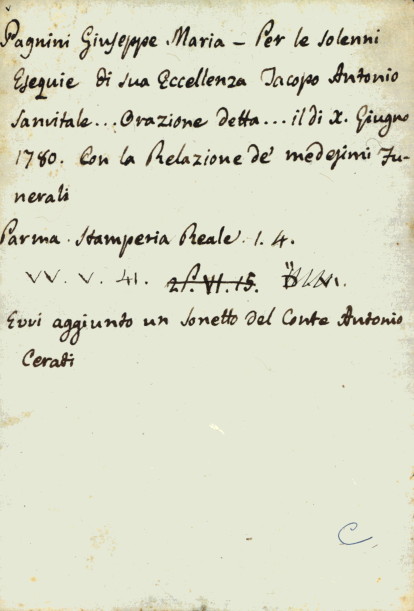 Pagnini Giuseppe Maria – Per le solenni
Esequie di sua Eccellenza Jacopo Antonio
Sanvitale... Orazione detta... il di X. Giugno
1780. Con la Relazione de' medesimi Fu-
nerali
Parma. Stamperia Reale. 1. 4.
VV. V. 41.
Evvi aggiunto un sonetto del Conte Antonio
Cerati
C.